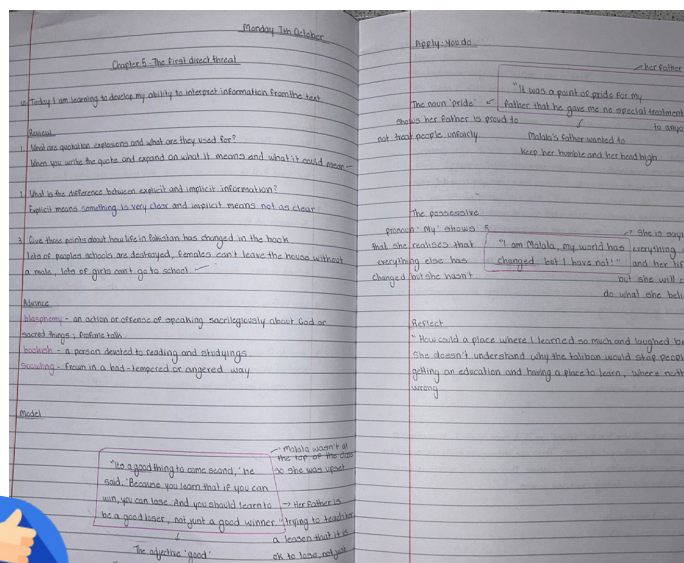 Monday 7th October
Chapter 5 - The first direct threat
Today I am learning to develop my ability to interpret information from the text
Review
1. What are quotation explosions and what are they used for?
When you write the quote and expand on what it means and what it could mean
2. What is the difference between explicit and implicit information?
Explicit means something is very clear and implicit means not as clear
3. Give three points about how life in Pakistan has changed in the book
lots of peoples schools are destroyed, females can't leave the house without
a male, lots of girls can't go to school
Advance
blasphemy - an action or offense of speaking sacrilegiously about God or
sacred things; profane talk
bookish - a person devoted to reading and studyings
scowling - frown in a bad-tempered or angered way
Model
Malala wasn't at
the top of the class
so she was upset
"Its a good thing to come second," he
said. "Because you learn that if you can
win, you can lose. And you should learn to
be a good loser, not just a good winner"
Her father is
trying to teach her
a lesson that it is
ok to lose, not just
The adjective 'good'
Apply - You do
her father
"It was a point of pride for my
father that he gave me no special treatment
The noun 'pride'
shows her father is proud to
not treat people unfairly
to anyo
Malala's father wanted to
keep her humble and her head high
The possessive
pronoun 'My' shows
that she realises that
everything else has
changed but she hasn't
"I am Malala, my world has
changed, but I have not!"
She is sayi
everything
and her lif
but she will c
do what she beli
Reflect
"How could a place where I learned so much and laughed so
She doesn't understand why the taliban would stop peopl
getting an education and having a place to learn, where noth
wrong